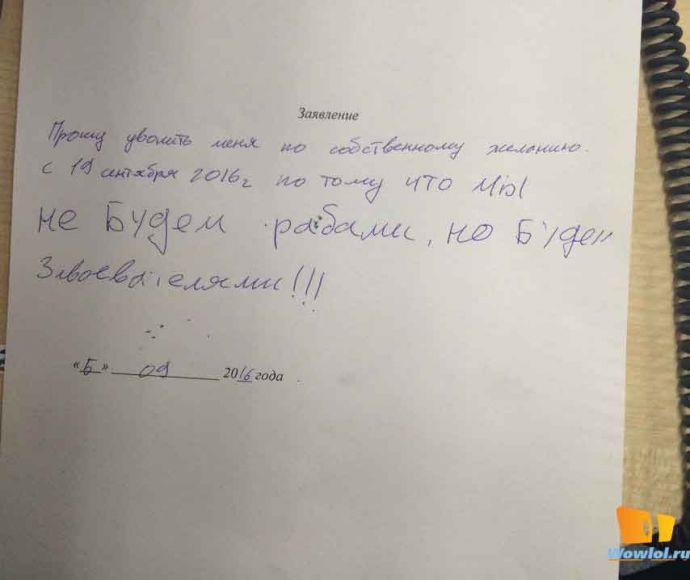 Заявление
Прошу уволить меня по собственному желанию.
с 19 сентября 2016г по тому что мы
не Будем рабами, но Будем
Завоевателями!!!
«Б» 09 2016 года
Wowlol.ru